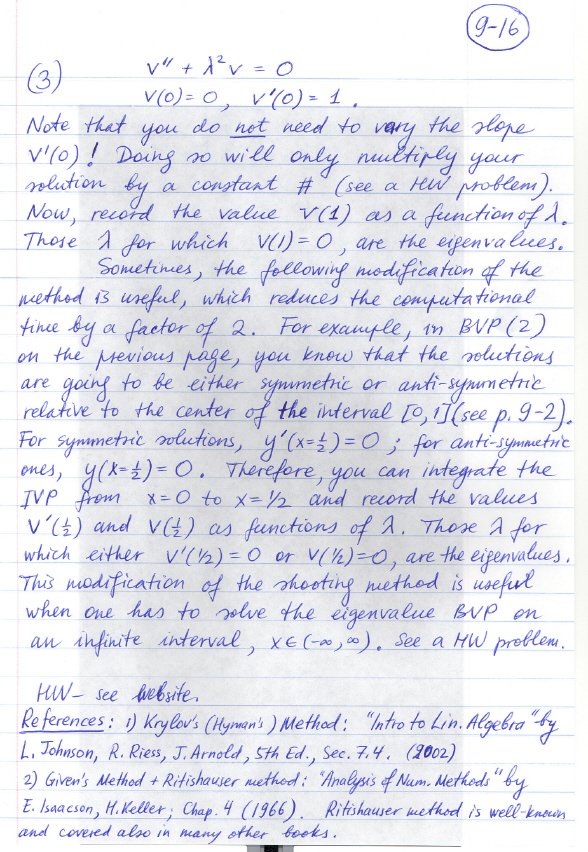 9-16
(3) v″ + λ²v = 0
v(0) = 0, v′(0) = 1.
Note that you do not need to vary the slope
v′(0)! Doing so will only multiply your
solution by a constant # (see a HW problem).
Now, record the value v(1) as a function of λ.
Those λ for which v(1) = 0, are the eigenvalues.
Sometimes, the following modification of the
method is useful, which reduces the computational
time by a factor of 2. For example, in BVP (2)
on the previous page, you know that the solutions
are going to be either symmetric or anti-symmetric
relative to the center of the interval [0,1] (see p. 9-2).
For symmetric solutions, y′(x=½) = 0; for anti-symmetric
ones, y(x=½) = 0. Therefore, you can integrate the
IVP from x=0 to x=1/2 and record the values
v′(½) and v(½) as functions of λ. Those λ for
which either v′(1/2) = 0 or v(1/2) = 0, are the eigenvalues.
This modification of the shooting method is useful
when one has to solve the eigenvalue BVP on
an infinite interval, x∈(-∞, ∞). See a HW problem.
HW – see website.
References: 1) Krylov's (Hyman's) Method: "Intro to Lin. Algebra" by
L. Johnson, R. Riess, J. Arnold, 5th Ed., Sec. 7.4. (2002)
2) Given's Method + Ritishauser method: "Analysis of Num. Methods" by
E. Isaacson, H. Keller; Chap. 4 (1966). Ritishauser method is well-known
and covered also in many other books.